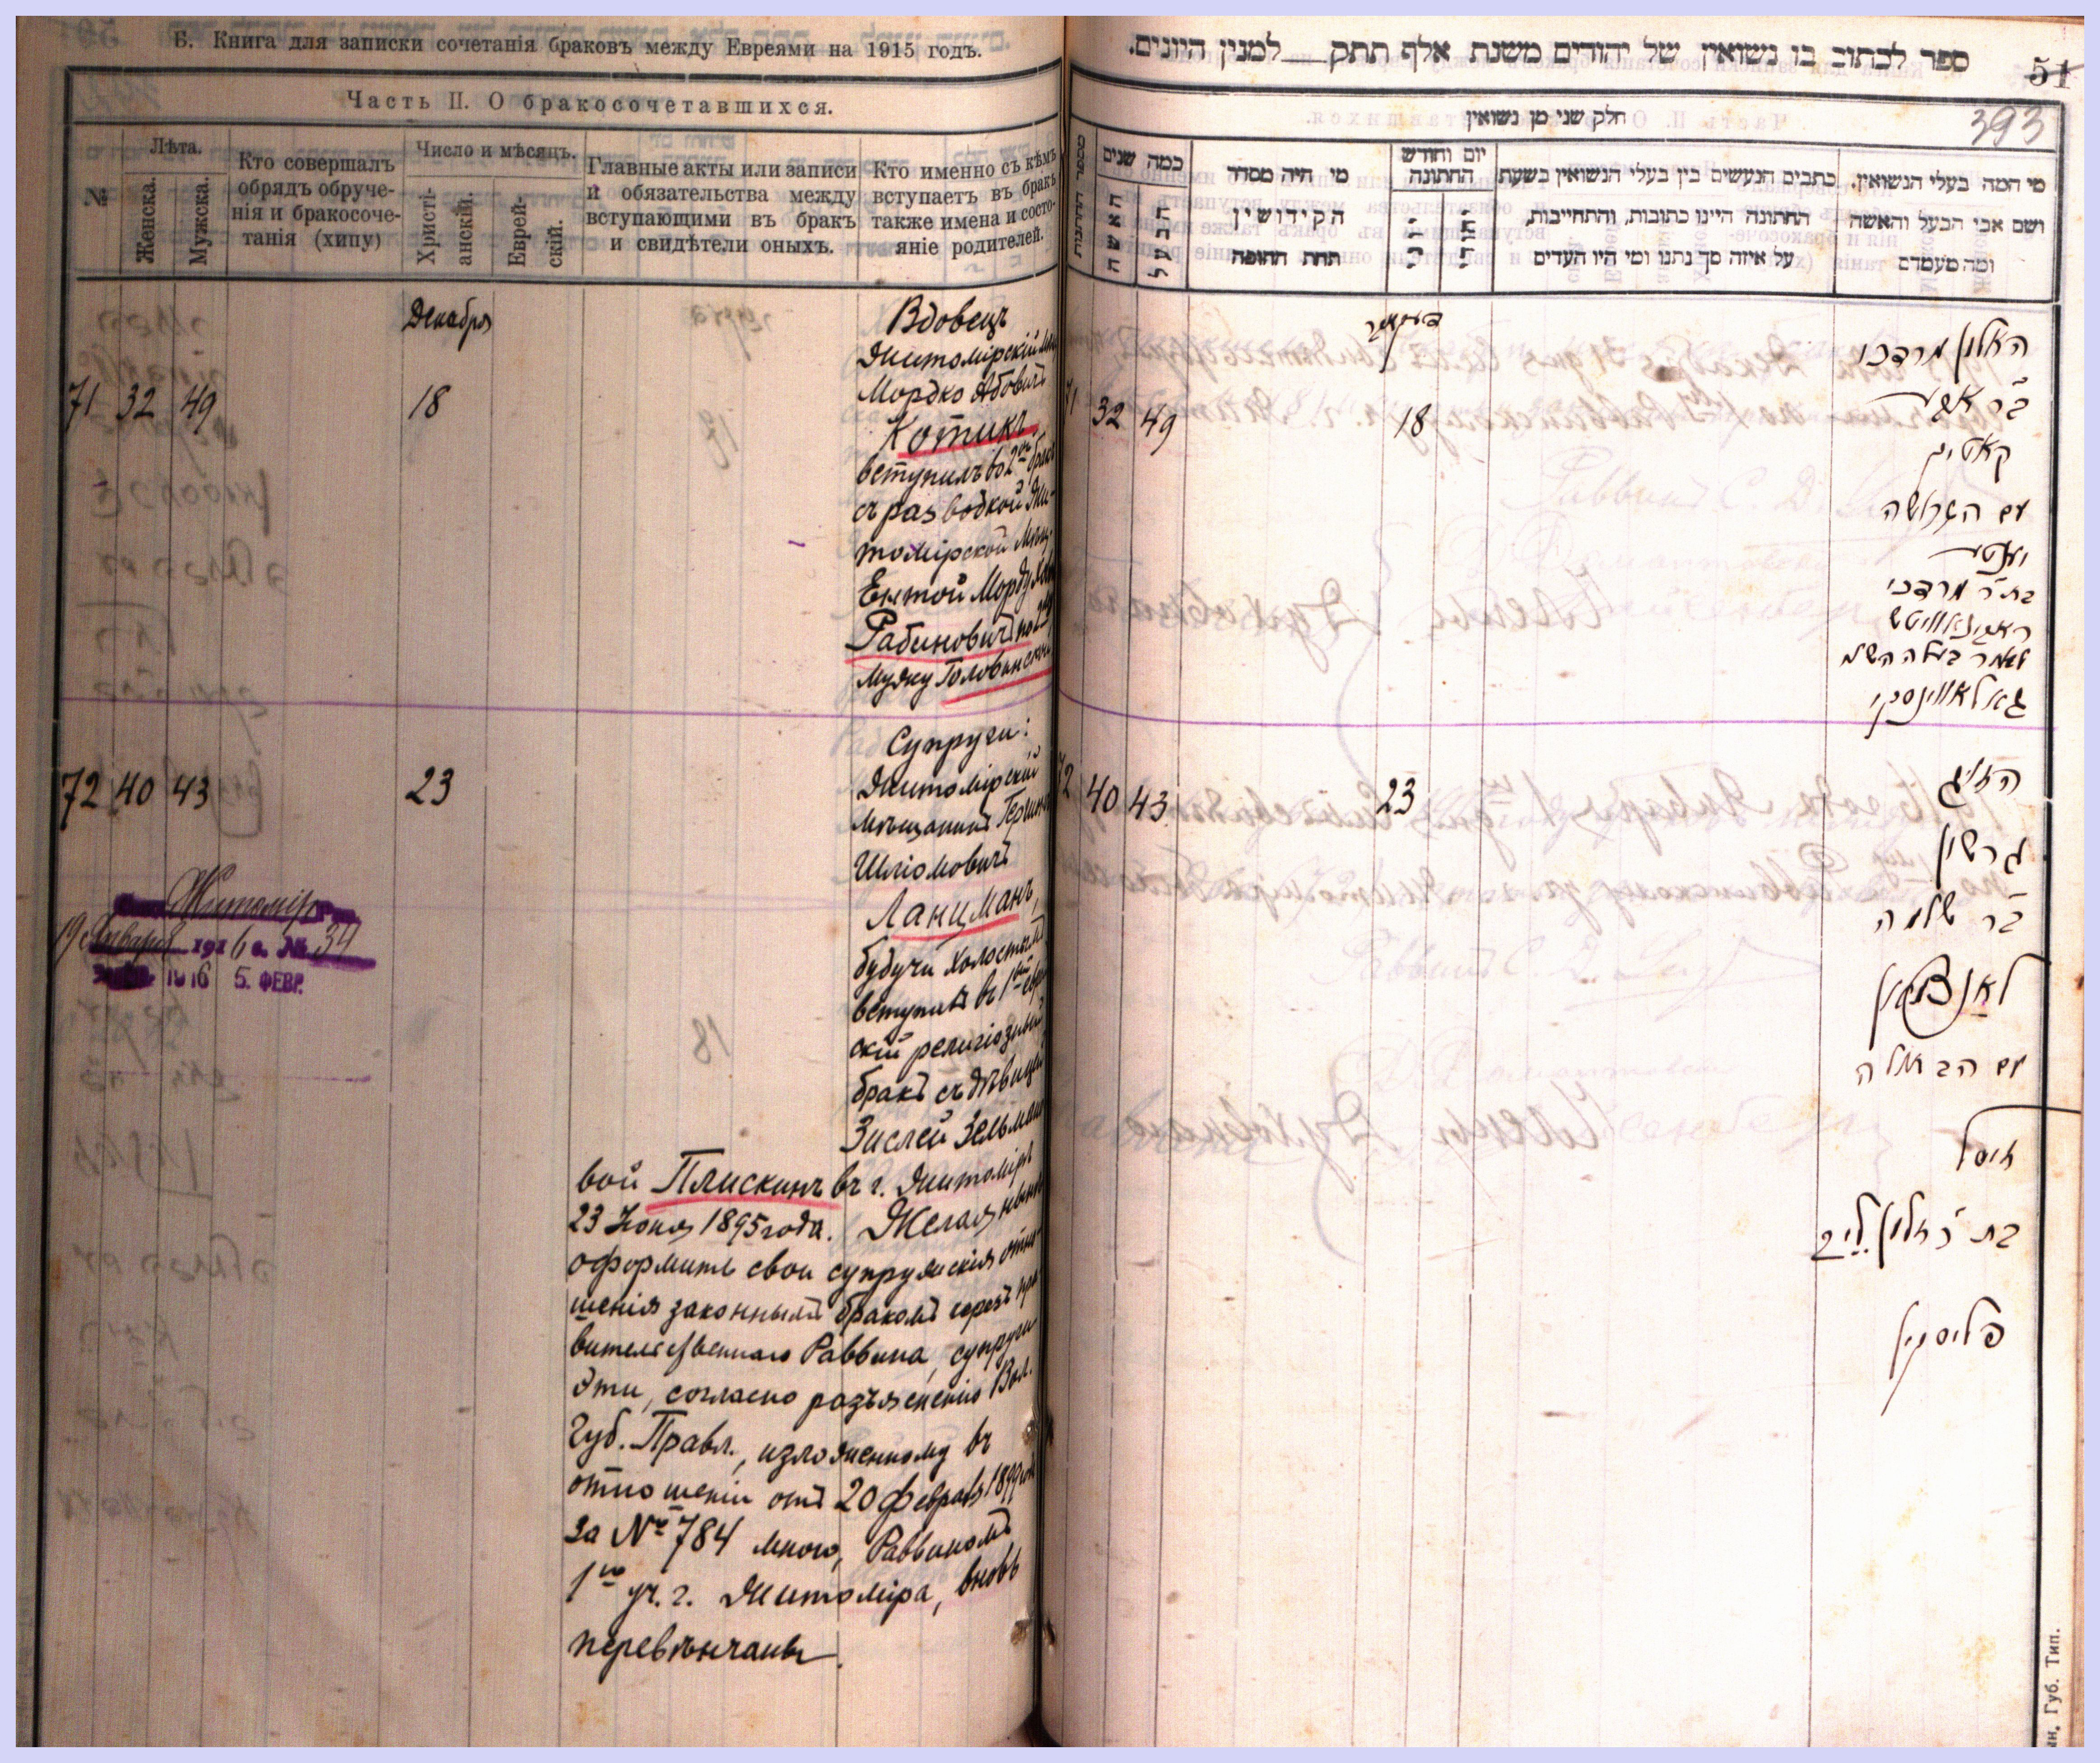 Б. Книга для записки сочетанія браковъ между Евреями на 1915 годъ.
Часть II. О бракосочетавшихся.
№
Лѣта.
Женска.
Мужска.
Кто совершалъ
обрядъ обруче-
нія и бракосоче-
танія (хипу)
Число и мѣсяцъ.
Христі-
анскій.
Еврей-
скій.
Главные акты или записи
и обязательства между
вступающими въ бракъ
и свидѣтели оныхъ.
Кто именно съ кѣмъ
вступаетъ въ бракъ
также имена и состо-
яніе родителей.
Декабря
71 32 49 18
Вдовецъ
Житомірскій мѣщ
Мордко Абовичъ
Котикъ,
вступилъ во 2ой бракъ
съ разводкой Жи-
томірской Мѣщ.
Ентой Мордухов
Рабиновичъ по 2му
мужу Головинской
72 40 43 23
Супруги:
Житомірскій
мѣщанинъ Гершонъ
Шліомовичъ
Ланцманъ,
будучи холостымъ
вступилъ въ 1ый евр
скій религіозный
бракъ съ дѣвицей
Зислей Зельман
вой Плискинъ въ г. Житомірѣ
23 Іюня 1895 года. Желая нынѣ
оформить свои супружескія отно-
шенія законнымъ бракомъ черезъ пра
вительственнаго Раввина, супруги
эти, согласно разъясненію Вол.
Губ. Правл., изложенному въ
отношеніи отъ 20 Февраля 1899 года
за № 784 мною, Раввиномъ
1го уч. г. Житоміра, вновь
перевѣнчаны.
Житомір
19 Января 1916 г. № 34
1916 5. ФЕВР.
ספר לכתוב בו נשואין של יהודים משנת אלף תתק למנין היונים.
51
393
חלק שני מן נשואין
מספר החתונות
כמה שנים
האשה
הבעל
מי היה מסדר
הקידושין
תחת החופה
יום וחודש
החתונה
כתבים הנעשים בין בעלי הנשואין בשעת
החתונה היינו כתובות, והתחייבות,
על איזה סך נתנו ומי היו העדים
מי המה בעלי הנשואין.
ושם אבי הבעל והאשה
ומה מעמדם
דעקאבר
71 32 49 18
האלמן מרדכי
ב״ר אבא
קאטיק
עם הגרושה
יענטא
בת ר׳ מרדכי
ראבינאוויטש
גאלאווינסקי
72 40 43 23
הזוג
גרשון
ב״ר שלמה
לאנצמאן
עם הבתולה
זיסל
פליסקין
Губ. Тип.